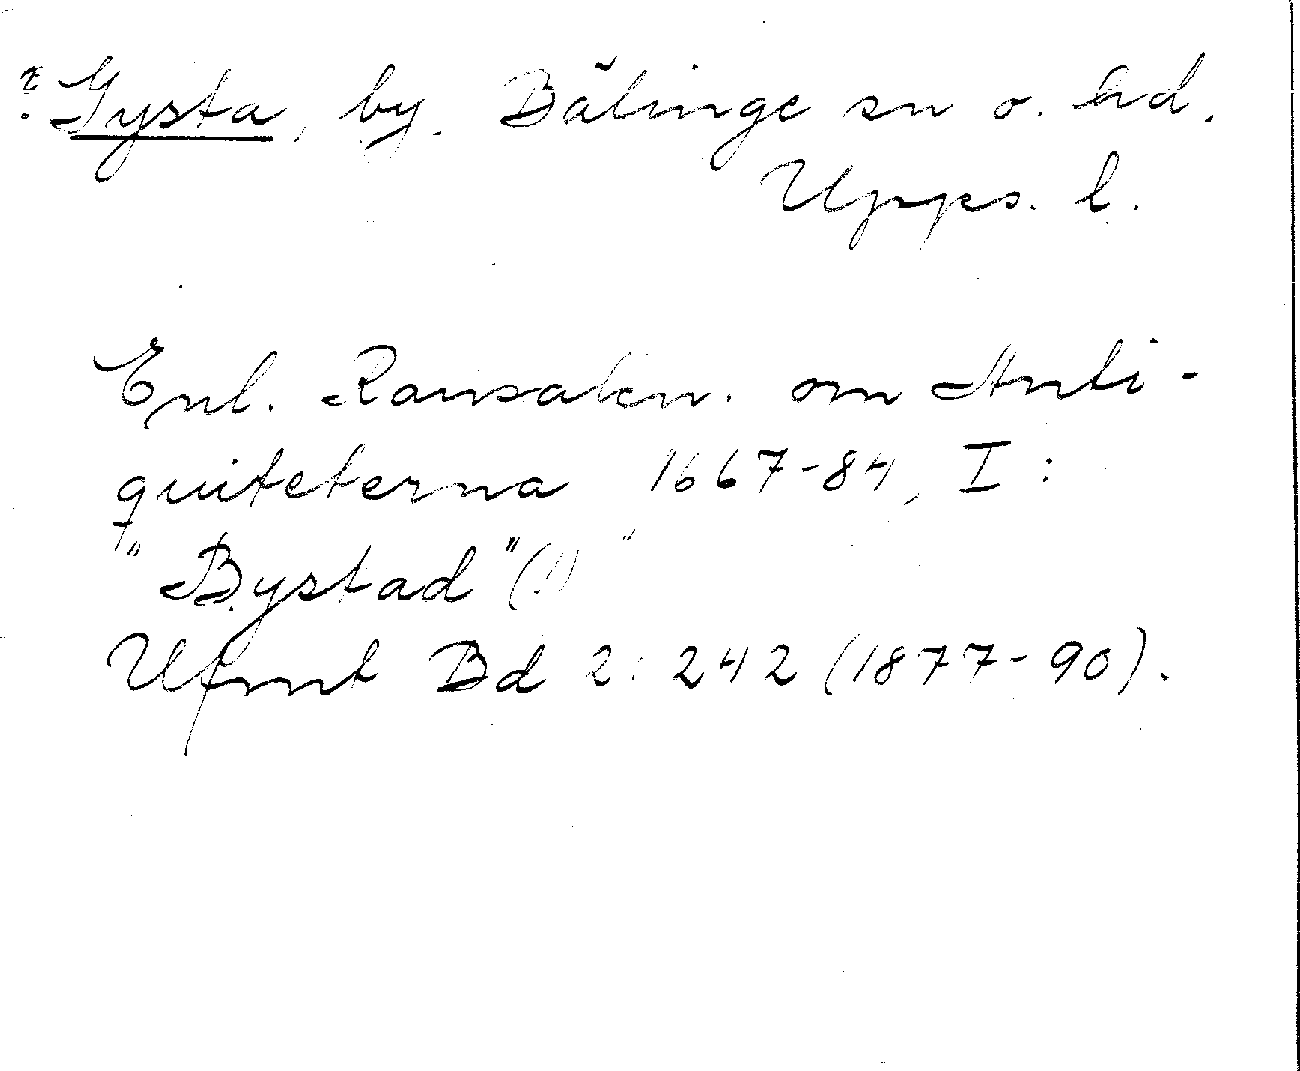 ? Gysta, by. Bälinge sn o. hd.
Upps. l.
Enl. Ransakn. om Anti-
quiteterna 1667-84, I:
"Bystad" (!)
Ufmt Bd 2: 242 (1877-90).